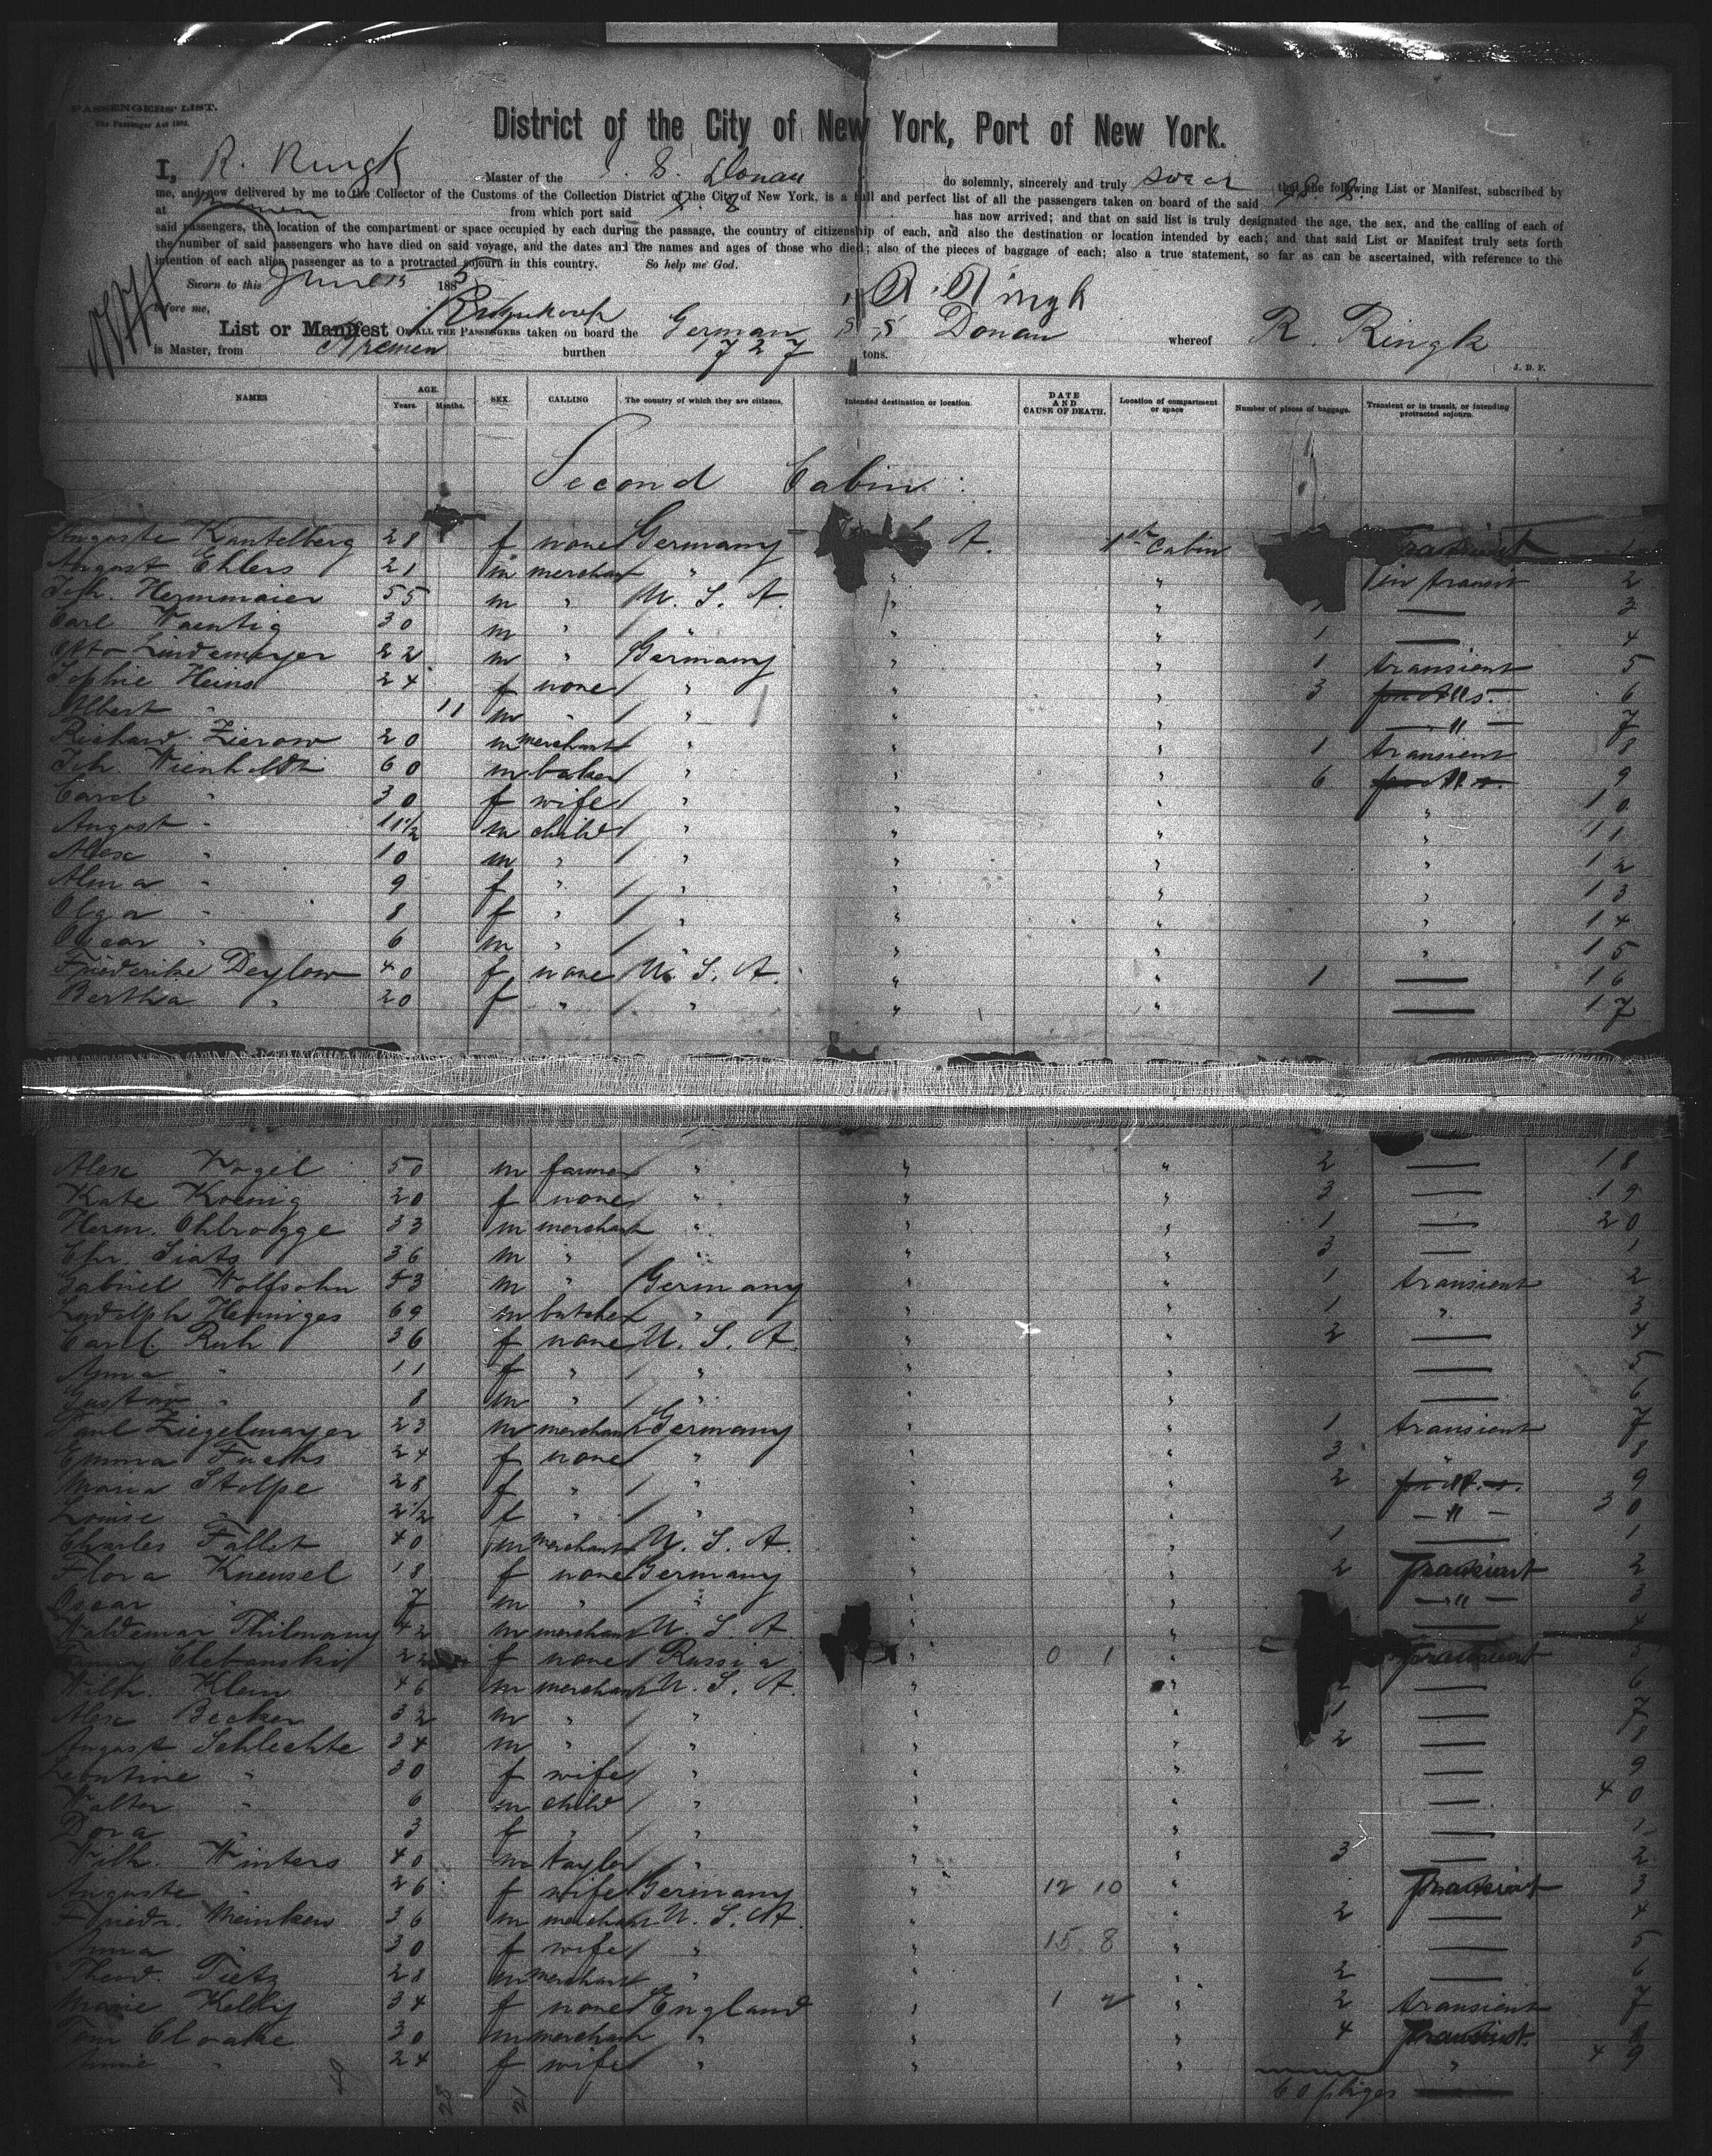 PASSENGERS' LIST.
The Passenger Act 1882.
District of the City of New York, Port of New York.
I, R. Ringk Master of the S. S. Donau do solemnly, sincerely and truly swear that the following List or Manifest, subscribed by
me, and now delivered by me to the Collector of the Customs of the Collection District of the City of New York, is a full and perfect list of all the passengers taken on board of the said S. S.
at Bremen from which port said S. S. has now arrived; and that on said list is truly designated the age, the sex, and the calling of each of
said passengers, the location of the compartment or space occupied by each during the passage, the country of citizenship of each, and also the destination or location intended by each; and that said List or Manifest truly sets forth
the number of said passengers who have died on said voyage, and the dates and the names and ages of those who died; also of the pieces of baggage of each; also a true statement, so far as can be ascertained, with reference to the
intention of each alien passenger as to a protracted sojourn in this country. So help me God.
Sworn to this June 15 1885 R. Ringk
before me,
List or Manifest OF ALL THE PASSENGERS taken on board the German S S Donau whereof R. Ringk
is Master, from Bremen burthen 727 tons.
J. D. F.
NAMES AGE. Years. Months. SEX. CALLING The country of which they are citizens. Intended destination or location. DATE AND CAUSE OF DEATH. Location of compartment or space Number of pieces of baggage. Transient or in transit, or intending protracted sojourn.
Second Cabin
Auguste Kantelberg 28 f none Germany A. 1st Cabin Transient 1
August Ehlers 21 m merchant " " " in transit 2
Joh. Hemmaier 55 m " U. S. A. " " 1 — 3
Carl Waentig 30 m " " " " 1 — 4
Otto Lindemeyer 22 m " Germany " " 1 transient 5
Sophie Heins 24 f none " " " 3 prot. s. 6
Albert " 11 m " " " " — " — 7
Richard Zierow 20 m merchant " " " 1 transient 8
Joh. Wienholdt 60 m baker " " " 6 prot. s. 9
Carol. " 30 f wife " " " " 10
August " 11 1/2 m child " " " " 11
Alex " 10 m " " " " " 12
Alma " 9 f " " " " " 13
Olga " 8 f " " " " " 14
Oscar " 6 m " " " " " 15
Friederike Deylow 40 f none U. S. A. " " 1 — 16
Bertha " 20 f " " " " — 17
Alex Vogel 50 m farmer " " " 2 — 18
Kate Koenig 20 f none " " " 3 — 19
Herm. Ohlrogge 33 m merchant " " " 1 — 20
Chr. Siats 36 m " " " " 3 — 1
Gabriel Wolfsohn 53 m " Germany " " 1 transient 2
Ludolph Heminges 69 m butcher " " " 1 " 3
Carol. Ruh 36 f none U. S. A. " " 2 — 4
Anna " 11 f " " " " — 5
Gustav " 8 m " " " " — 6
Paul Ziegelmayer 23 m merchant Germany " " 1 transient 7
Emma Fuchs 24 f none " " " 3 " 8
Maria Stolpe 28 f " " " " 2 prot. s. 9
Louise " 2 1/2 f " " " " — " — 30
Charles Fallet 40 m merchant U. S. A. " " 1 — 1
Flora Kneusel 18 f none Germany " " 2 Transient 2
Oscar " 7 m " " " " — " — 3
Waldemar Thilmany 42 m merchant U. S. A. " " — 4
Fanny Clebanski 22 f none Russia " 0 1 " Transient 5
Wilh. Klein 46 m merchant U. S. A. " " 2 — 6
Alex Becker 32 m " " " " 1 — 7
August Schlechte 34 m " " " " 2 — 8
Leontine " 30 f wife " " " — 9
Walter " 6 m child " " " — 40
Dora " 3 f " " " " — 1
Wilh. Winters 40 m taylor " " " 3 — 2
Auguste " 26 f wife Germany " 12 10 " Transient 3
Friedr. Meinken 36 m merchant U. S. A. " " 2 — 4
Anna " 30 f wife " " 15 8 " — 5
Theod. Tietz 28 m merchant " " " 2 — 6
Marie Kelly 34 f none England " 1 2 " 2 transient 7
Tom Cloake 30 m merchant " " " 4 Transient 8
Annie " 24 f wife " " " " 49
28 21 60 pkges